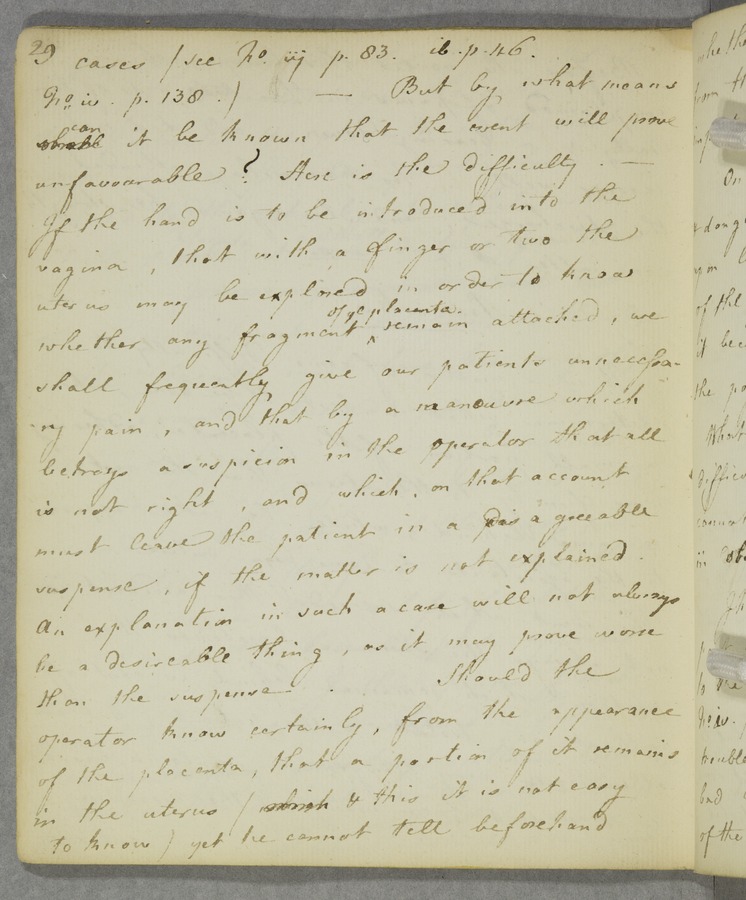 29
cases (see No. iij p. 83. ib. p. 46.
No. iv. p. 138.) — But by what means
can it be known that the event will prove
unfavourable? Here is the difficulty. —
If the hand is to be introduced into the
vagina, that with a finger or two the
uterus may be explored in order to know
whether any fragment of ye placenta remain attached, we
shall frequently give our patients unnecessa-
-ry pain, and that by a manœuvre which
betrays a suspicion in the operator that all
is not right, and which, on that account
must leave the patient in a disagreeable
suspense, if the matter is not explained.
An explanation in such a case will not always
be a desireable thing, as it may prove worse
than the suspense. Should the
operator know certainly, from the appearance
of the placenta, that a portion of it remains
in the uterus (which & this it is not easy
to know) yet he cannot tell beforehand